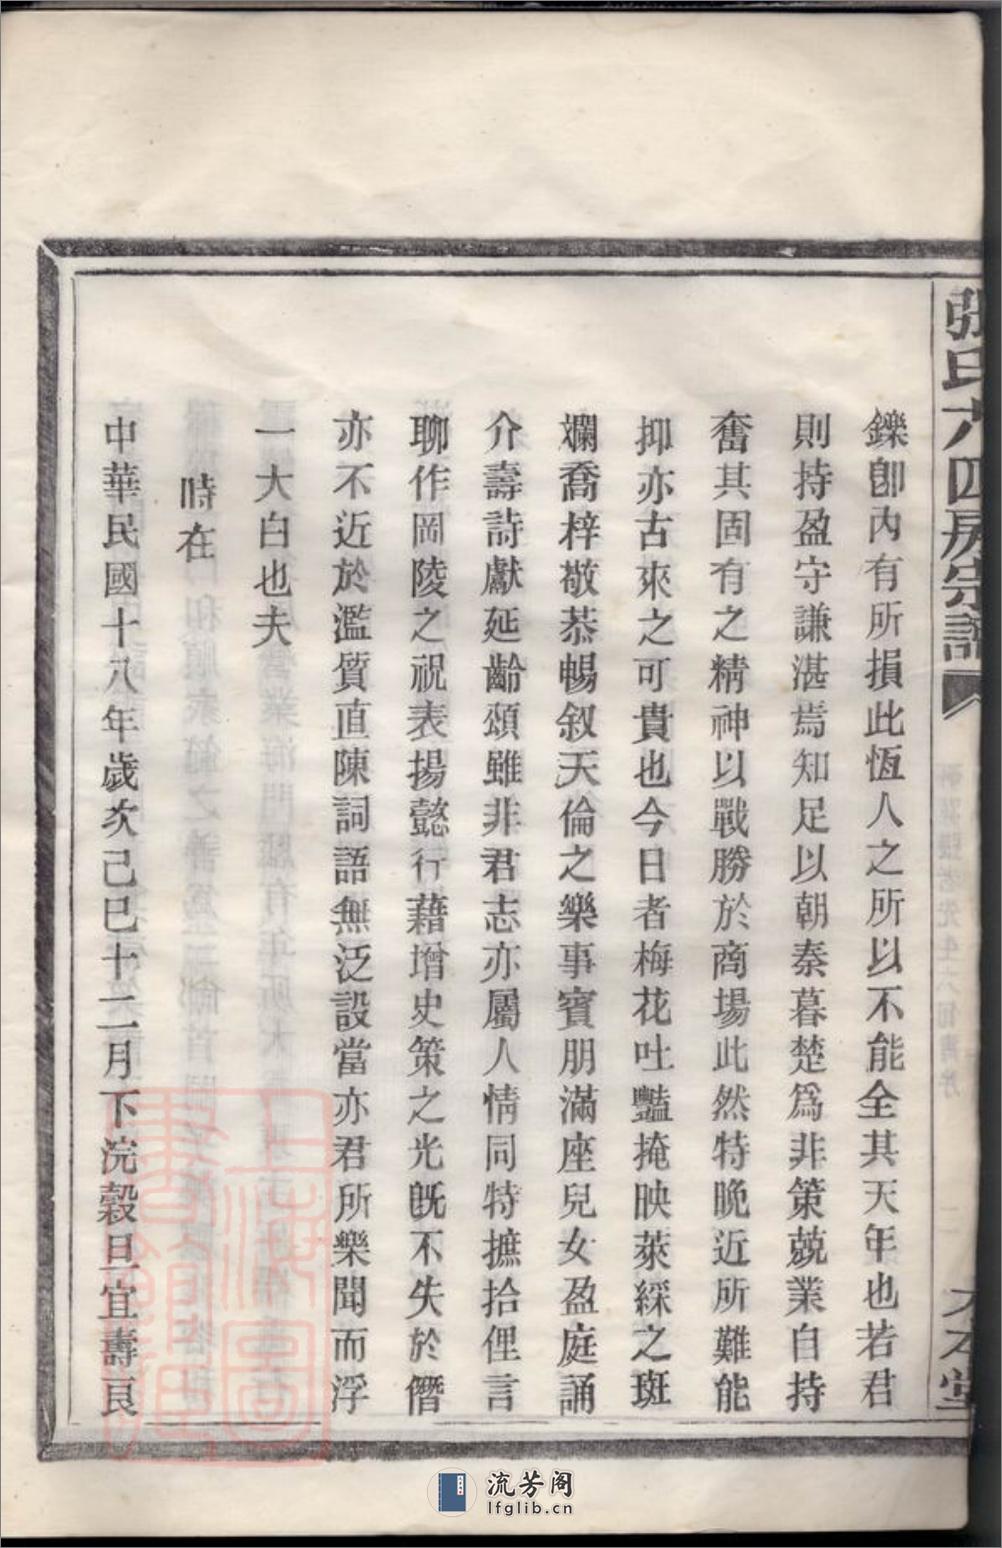 張氏六四房宗譜
二
六本堂
鑠卽內有所損此恆人之所以不能全其天年也若君
則持盈守謙湛焉知足以朝秦暮楚爲非策兢業自持
奮其固有之精神以戰勝於商場此然特晚近所難能
抑亦古來之可貴也今日者梅花吐豔掩映萊綵之斑
斕喬梓敬恭暢叙天倫之樂事賓朋滿座兒女盈庭誦
介壽詩獻延齡頌雖非君志亦屬人情同特摭拾俚言
聊作岡陵之祝表揚懿行藉增史策之光旣不失於僭
亦不近於濫質直陳詞語無泛設當亦君所樂聞而浮
一大白也夫
時在
中華民國十八年歲次己巳十二月下浣穀旦宜壽良
上海圖書館藏
流芳阁
lfglib.cn